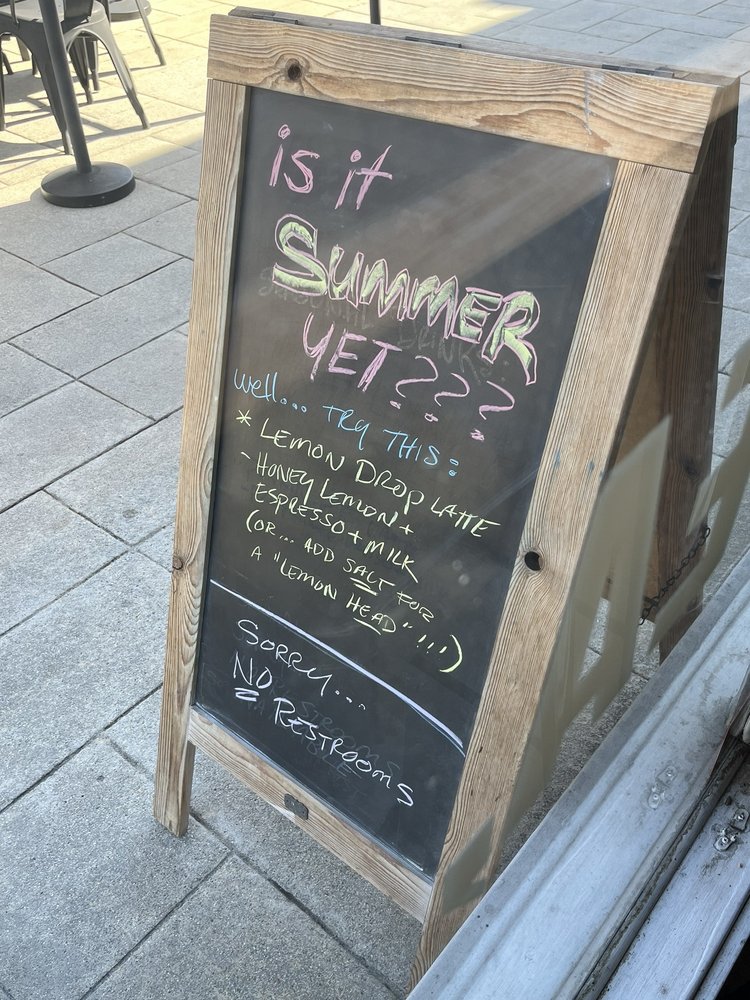 is it
SUMMER
YET???
Well... TRY THIS:
* LEMON DROP LATTE
- HONEY LEMON +
ESPRESSO + MILK
(OR... ADD SALT FOR
A "LEMON HEAD"!!!)
SORRY...
NO RESTROOMS